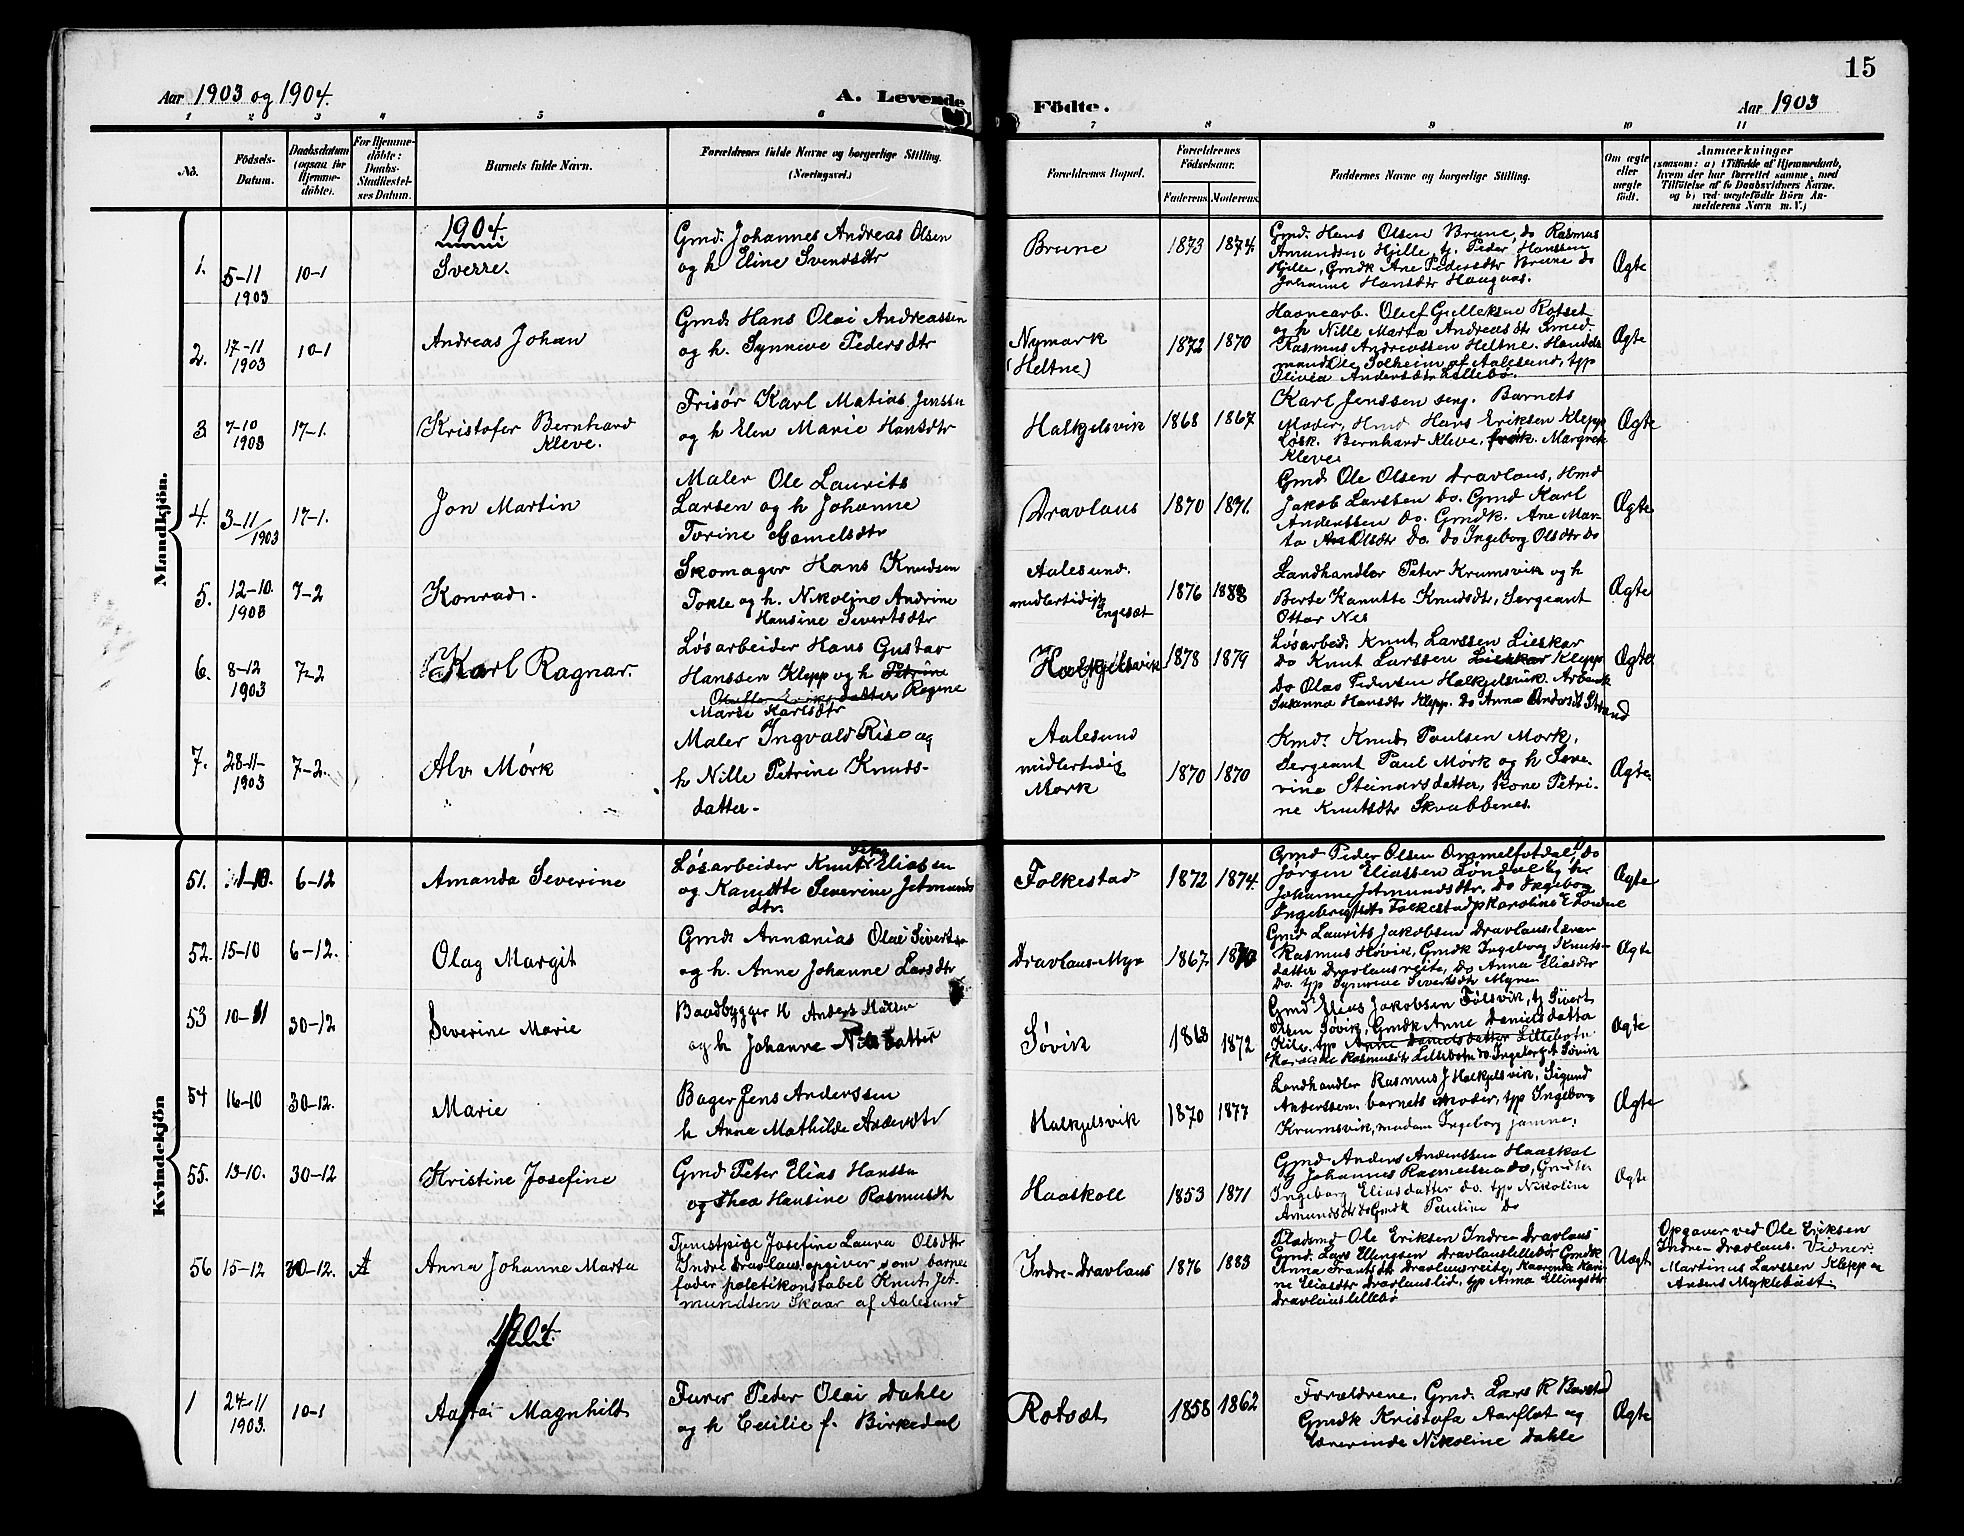 Aar 1903 og 1904.
A. Levende
Födte.
Aar 1903
15
1 2 3 4 5 6 7 8 9 10 11
No.
Födsels-
Datum.
Daabsdatum
(ogsaa for
Hjemme-
döbte).
For Hjemme-
döbte:
Daabs-
Stadfæstel-
ses Datum.
Barnets fulde Navn.
Forældrenes fulde Navne og borgerlige Stilling.
(Næringsvei.)
Forældrenes Bopæl.
Forældrenes
Födselsaar.
Faderens Moderens
Faddernes Navne og borgerlige Stilling.
Om ægte
eller
uægte
födt.
Anmærkninger
(saasom: a) i Tilfælde af Hjemmedaab,
hvem der har forrettet samme, med
Tilföielse af to Daabsvidners Navne,
og b) ved uægtefödte Börn An-
melderens Navn m. V.)
Mandkjön.
1904.
1. 5-11 1903 10-1 Sverre.
Gmd. Johannes Andreas Olsen
og h Eline Svendsdtr
Brune 1873 1874
Gmd. Hans Olsen Brune, do Rasmus
Amundsen Hjelle, tj. Peder Hanssen
Hjelle, Gmdk Ane Pedersdtr Brune do
Johanne Hansdtr Haugaas.
Ægte
2. 17-11 1903 10-1 Andreas Johan
Gmd. Hans Olai Andreassen
og h. Synneve Pedersdtr
Nymark
(Heltne)
1872 1870
Havnearb. Oluf Gulleksen Rotset
og h Nille Marta Andreasdtr Smed
Rasmus Andreassen Heltne. Handels
mand Ole Solheim af Aalesund, typ
Olivia Andersdtr Lillebø.
Ægte
3 7-10 1903 17-1. Kristofer Bernhard
Kleve.
Frisør Karl Matias Jenssen
og h Elen Marie Hansdtr
Halkjelsvik 1868 1867
Karl Jenssen sen. Barnets
Moder, Hmd Hans Eriksen Klepp
Løsk. Bernhard Kleve, frøk. Margrete
Kleve
Ægte
4. 3-11/1903 17-1. Jon Martin
Maler Ole Laurits
Larsen og h Johanne
Torine Comelsdtr
Dravlaus 1870 1871.
Gmd Ole Olsen Dravlaus, Hmd
Jakob Larssen do. Gmd Karl
Anderssen do. Gmdk. Ane Mar-
ta Olsdtr do. do Ingeborg Olsdtr do
Ægte
5. 12-10. 1903 7-2 Konrad.
Skomager Hans Knudsen
Tokle og h. Nikoline Andrine
Hansine Sivertsdtr
Aalesund.
midlertidig
Engeset
1876 1883
Landhandler Peter Krumsvik og h
Berte Kanutte Knudsdtr, Sergeant
Ottar Nes
Ægte
6. 8-12 1903 7-2 Karl Ragnar.
Løsarbeider Hans Gustav
Hanssen Klepp og h Petrine
datter Regine
Marie Karlsdtr
Halkjelsvik 1878 1879
Løsarbed. Knut Larssen Lieskar
do Knut Larssen Lieskar Klepp
do Olao Pedersen Halkjelsvik. Arbeidk
Susanna Hansdtr Klepp. do Anna Andersdt Strand
Ægte
7. 28-11- 1903 7-2. Alv Mørk
Maler Ingvald Riso og
h Nille Petrine Knuds-
datter-
Aalesund
midlertidig
Mørk
1870 1870
Kmd. Knud Paulsen Mørk,
Sergeant Paul Mørk og h Seve-
rine Steinarsdatter, kone Petri-
ne Knutsdtr Skrabbenes.
Ægte
Kvindekjön
51. 1-10. 6-12 Amanda Severine
Løsarbeider Knut Elias en
og Kanutte Severine Jetmunds
dtr.
Folkestad 1872 1874.
Gmd Peder Olsen Ommelfotdal, do
Jørgen Eliassen Løndal
Johanne Jetmundsdtr, do Ingeborg
Ingebrigtsdtr Folkestad
Ægte
52. 15-10 6-12. Olag Margit
Gmd. Annanias Olai Siverts
og h. Anne Johanne Larsdtr
Dravlaus-Myr 1867 1870
Gmd Laurits Jakobsen Dravlaus. lærer
Rasmus Høvik, Gmdk Ingeborg Knuts-
datter Dravlausreite, do Anna Eliasdtr
do. typ Synneve Sivertsdt Myren
Ægte
53 10-11 30-12 Severine Marie
Baadbygger H Anders
og h Johanne Nilsdatter
Søvik 1868 1872
Gmd Elias Jakobsen Følsvik, tj Sivert
Olsen Søvik, Gmdk Anne Danielsdatter
Kile, typ Anne Danielsdatter Lillebotn
Rasmusdtr Lillebotn
Ægte
54 16-10 30-12. Marie
Bager Jens Anderssen
h Anne Mathilde Andersdtr
Halkjelsvik 1870 1877
Landhandler Rasmus J Halkjelsvik, Sigund
Anderssen, barnets moder, typ Ingeborg
Krumsvik, madam Ingeborg Jamne,
Ægte
55. 13-10. 30-12 Kristine Josefine
Gmd Peter Elias Hanssen
og Thea Hansine Rasmusdt
Haaskoll 1853 1871
Gmd Anders Anderssen Haaskol
og Johannes Rasmussen do, Gmdtr
Ingeborg Eliasdatter do. typ Nikoline
Amundsdtr do Gmdk Pauline do
Ægte
56 15-12 30-12. A Anna Johanne Marta
Tjenstpige Josefine Laura Olsdtr
Indre Dravlaus opgiver som barne
fader politikonstabel Knut Jet
mundsen Skaar af Aalesund
Indre-Dravlaus 1876 1883
Pladsmd Ole Eriksen Indre-Dravlaus
Gmd. Lars Ellingsen Dravlauslillebø, Gmdk
Anna Frantsdt Dravlausreite, Kaarenka Kari-
ne Eliasdtr Dravlauslid, typ Anna Ellingsdtr
Dravlauslillebø
Uægte
Opgaver ved Ole Eriksen
Indre-Dravlaus. Vidner:
Martinus Larssen Klepp og
Anders Myklebust
1904.
1 24-11 1903. 10-1 Magnhild
Furer Peder Olai Dahle
og h Cecilie f. Birkedal
Rotset 1858 1862
Forældrene, Gmd. Lars R
Gmdk Kristofa Aarflot og
Lærerinde Nikoline Dahle
Ægte